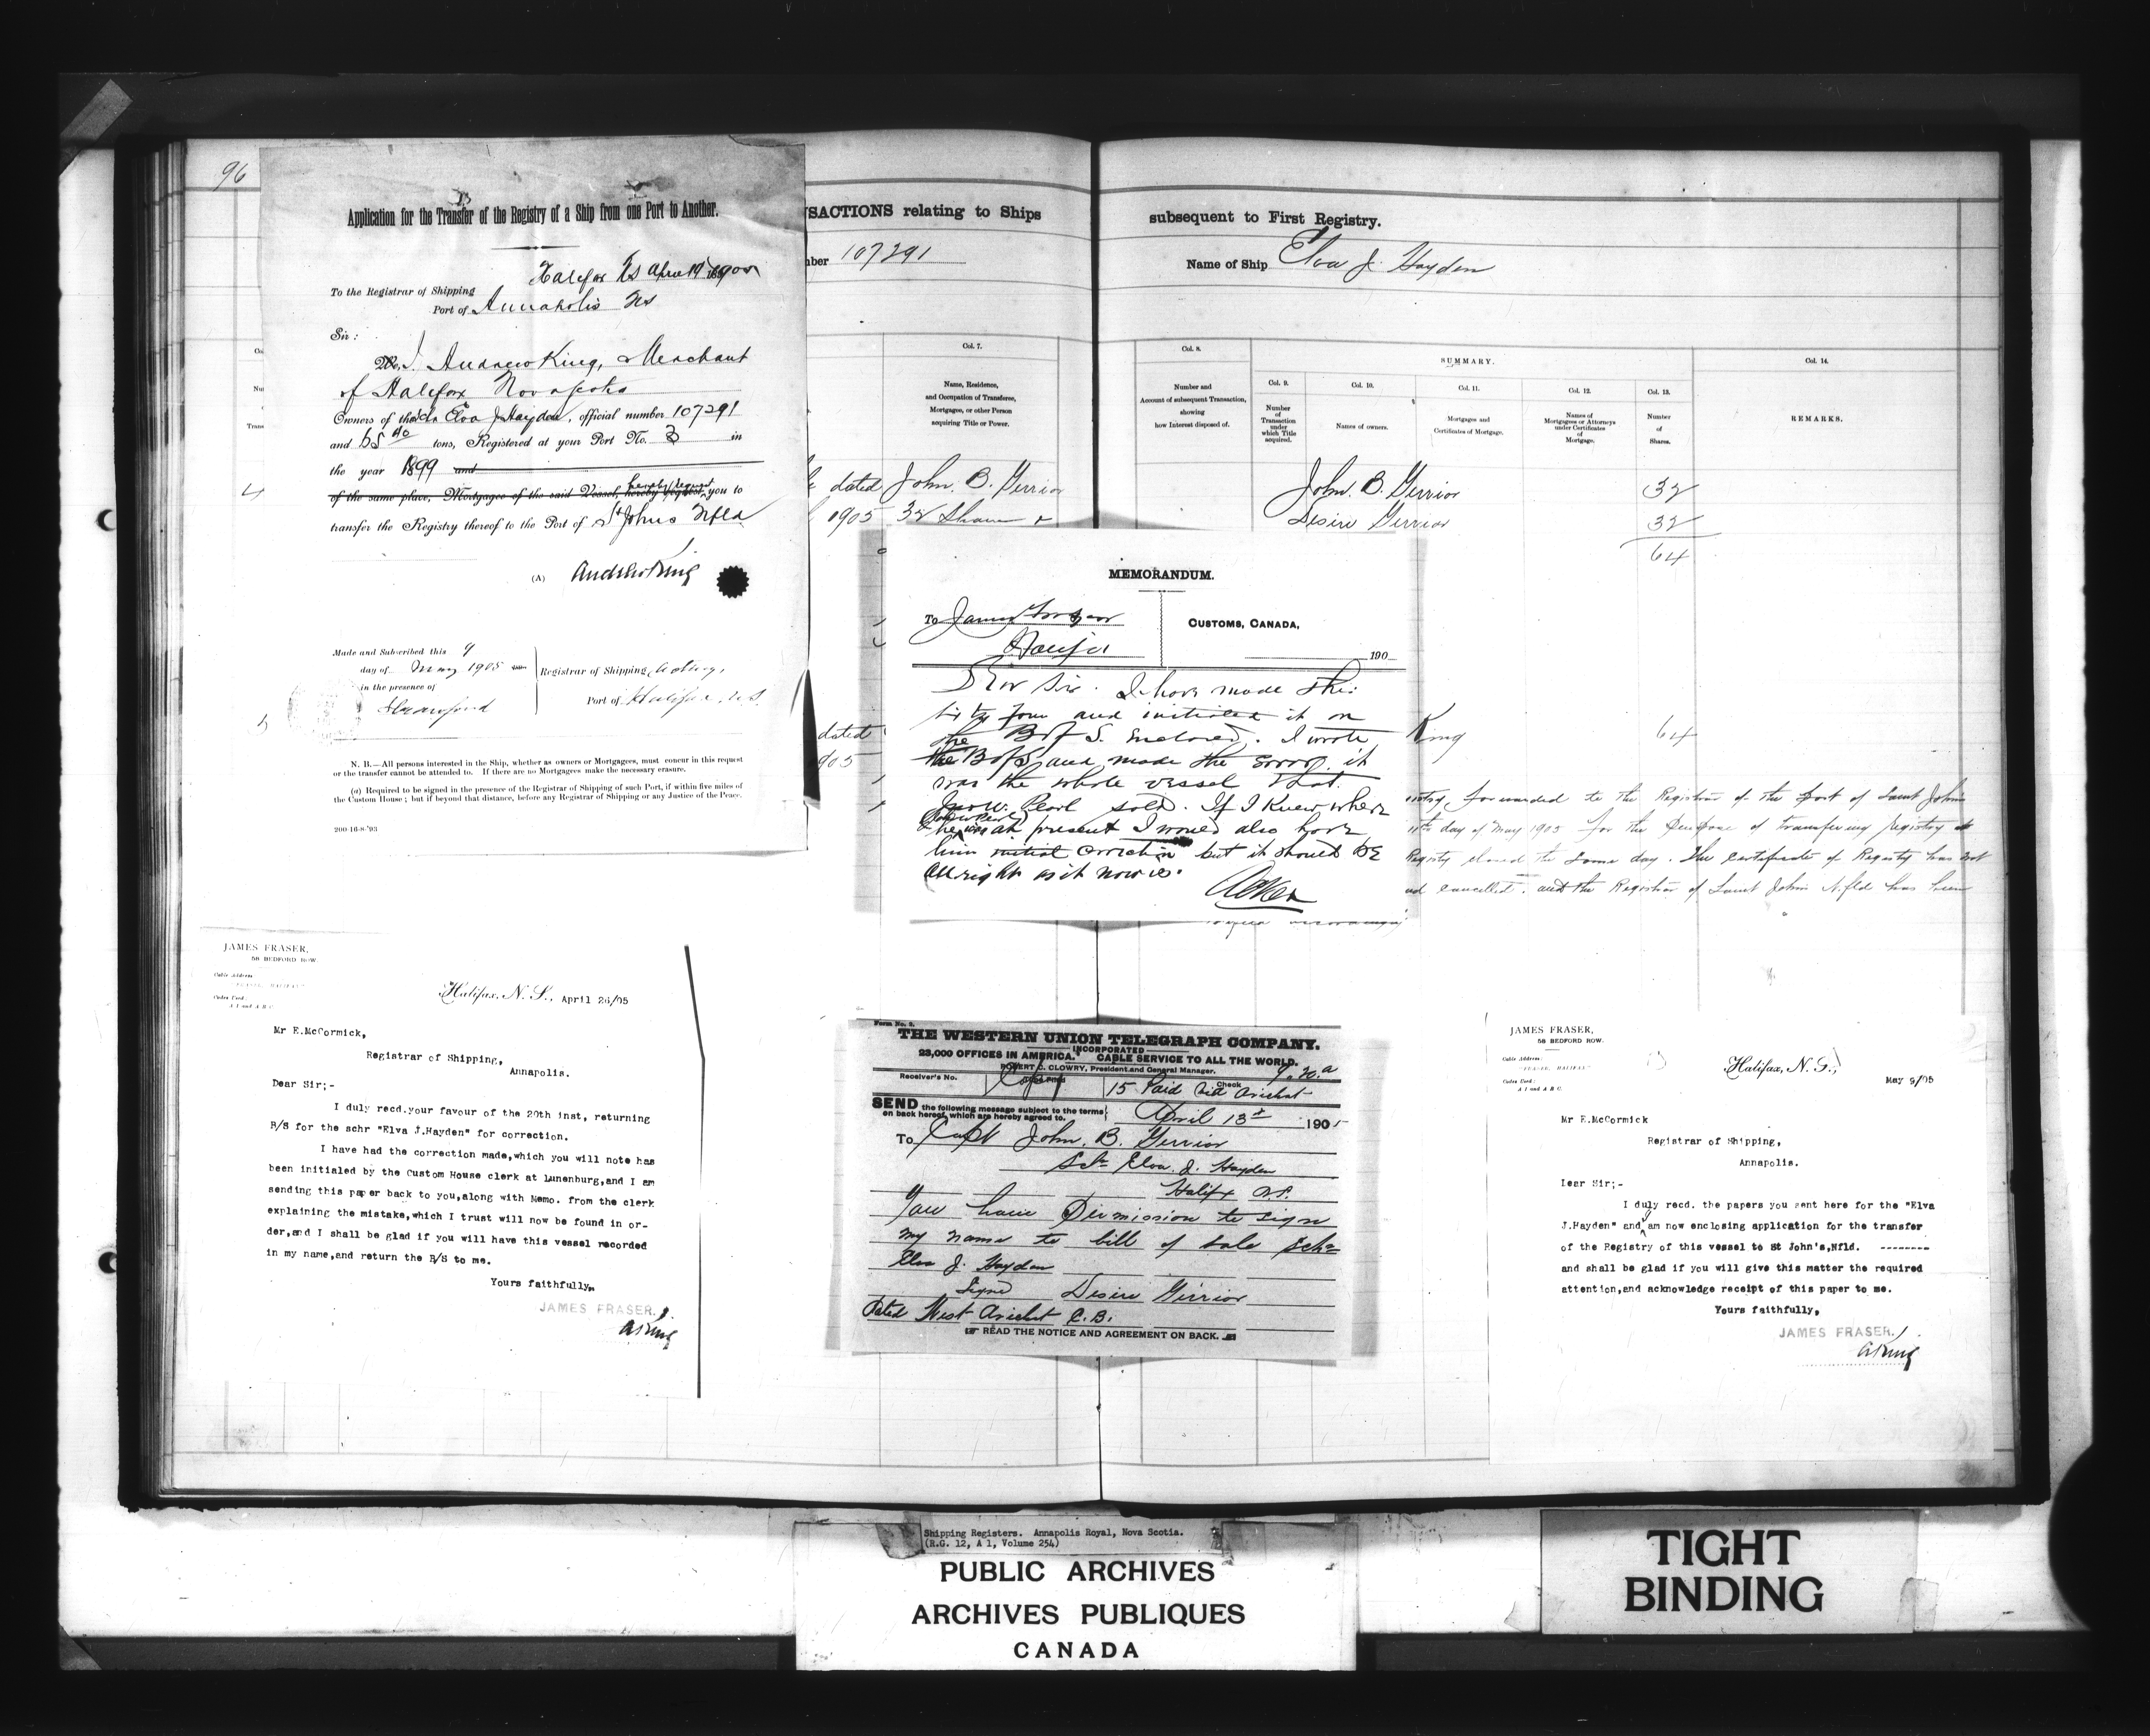 96
Application for the Transfer of the Registry of a Ship from one Port to Another.
Halifax NS April 19 1905
To the Registrar of Shipping
Port of Annapolis NS
Sir :
I, Andrew King, Merchant
of Halifax Nova Scotia
Owners of the Schr Elva J Hayden, official number 107291
and tons, Registered at your Port No. 3 in
the year 1899 and
of the same place, Mortgagee of the said Vessel, hereby request you to
transfer the Registry thereof to the Port of St Johns Nfld
(A) Andrew King
Made and Subscribed this 9
day of May 1905
in the presence of
Registrar of Shipping, Acting,
Port of Halifax, N.S.
N. B.—All persons interested in the Ship, whether as owners or Mortgagees, must concur in this request
or the transfer cannot be attended to. If there are no Mortgagees make the necessary erasure.
(a) Required to be signed in the presence of the Registrar of Shipping of such Port, if within five miles of
the Custom House ; but if beyond that distance, before any Registrar of Shipping or any Justice of the Peace.
200-16-8-'93
NSACTIONS relating to Ships
subsequent to First Registry.
mber 107291
Name of Ship Elva J. Hayden
Col. 7.
Name, Residence,
and Occupation of Transferee,
Mortgagee, or other Person
acquiring Title or Power.
Col. 8.
Number and
Account of subsequent Transaction,
showing
how Interest disposed of.
SUMMARY.
Col. 9.
Number
of
Transaction
under
which Title
acquired.
Col. 10.
Names of owners.
Col. 11.
Mortgages and
Certificates of Mortgage.
Col. 12.
Names of
Mortgagees or Attorneys
under Certificates
of
Mortgage.
Col. 13.
Number
of
Shares.
Col. 14.
REMARKS.
4
dated John. B. Gerrior
1905 32 Shares
John. B. Gerrior 32
Desire Gerrior 32
64
5
dated
905
King 64
entry forwarded to the Registrar of the Port of Saint John's
11th day of May 1905 for the Purpose of transfering registry
Registry closed the same day. The Certificate of Registry has not
and cancelled. and the Registrar of Saint John's N.fld has been
MEMORANDUM.
To James Fraser
Halifax
CUSTOMS, CANADA,
190
Dear Sir. I have made the
sixty four and initialed it on
the B of S. enclosed. I wrote
the B of S and made the error. it
was the whole vessel that
Jno W. Pearl sold. If I knew where
he was at present I would also have
him initial correction but it should be
all right as it now is.
JAMES FRASER,
58 BEDFORD ROW.
Cable Address:
"FRASER, HALIFAX"
Codes Used:
A 1 and A B C
Halifax, N. S., April 26/05
Mr E.McCormick,
Registrar of Shipping,
Annapolis.
Dear Sir;-
I duly recd.your favour of the 20th inst, returning
B/S for the schr "Elva J.Hayden" for correction.
I have had the correction made,which you will note has
been initialed by the Custom House clerk at Lunenburg,and I am
sending this paper back to you,along with Memo. from the clerk
explaining the mistake,which I trust will now be found in or-
der,and I shall be glad if you will have this vessel recorded
in my name,and return the B/S to me.
Yours faithfully,
JAMES FRASER,
A King
Form No. 2.
THE WESTERN UNION TELEGRAPH COMPANY.
INCORPORATED
23,000 OFFICES IN AMERICA. CABLE SERVICE TO ALL THE WORLD.
ROBERT C. CLOWRY, President and General Manager.
Receiver's No.
Copy
Check
15 Paid Arichat
SEND the following message subject to the terms
on back hereof, which are hereby agreed to.
April 13th 1905
To Capt John. B. Gerrior
Schr Elva. J. Hayden
Halifx N.S.
You have Permission to sign
my name to bill of sale Schr
Elva J. Hayden
Signd Desire Gerrior
Dated West Arichat C.B.
READ THE NOTICE AND AGREEMENT ON BACK.
JAMES FRASER,
58 BEDFORD ROW.
Cable Address:
"FRASER, HALIFAX"
Codes Used:
A 1 and A B C
Halifax, N. S., May 9/05
Mr E.McCormick
Registrar of Shipping,
Annapolis.
Dear Sir;-
I duly recd. the papers you sent here for the "Elva
J.Hayden" and am now enclosing application for the transfer
of the Registry of this vessel to St John's,Nfld. --------
and shall be glad if you will give this matter the required
attention,and acknowledge receipt of this paper to me.
Yours faithfully,
JAMES FRASER,
A King
Shipping Registers. Annapolis Royal, Nova Scotia.
(R.G. 12, A 1, Volume 254)
PUBLIC ARCHIVES
ARCHIVES PUBLIQUES
CANADA
TIGHT
BINDING